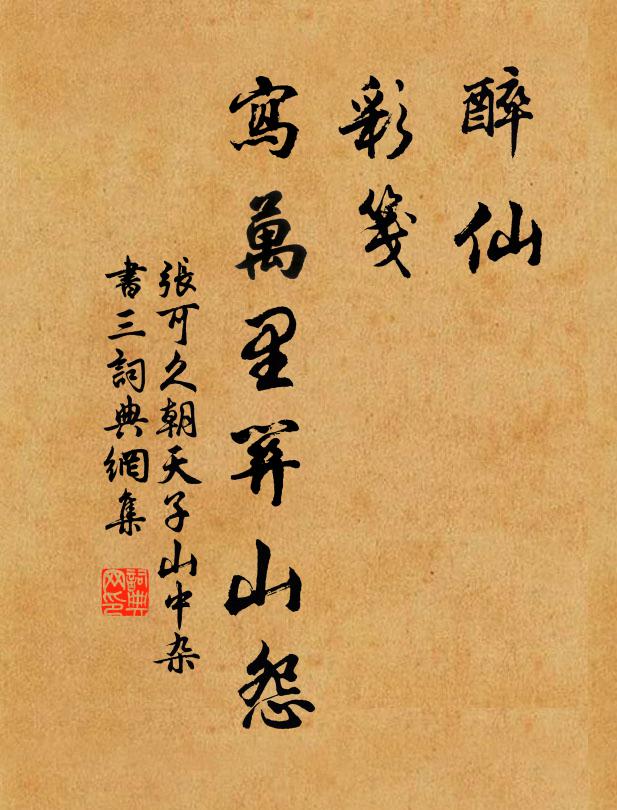 醉仙
彩箋
寫萬里關山怨
張可久朝天子山中杂
書三詞典網集
詞典网印